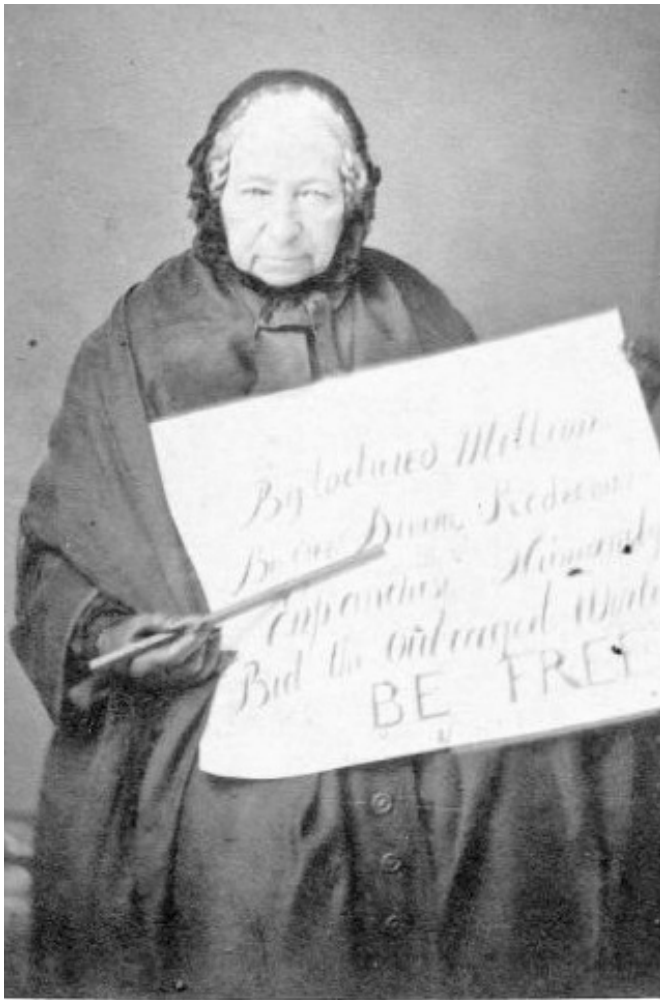 By tortured Millions
By our Divine Redeemer
Enfranchise Humanity
Bid the Outraged World
BE FREE